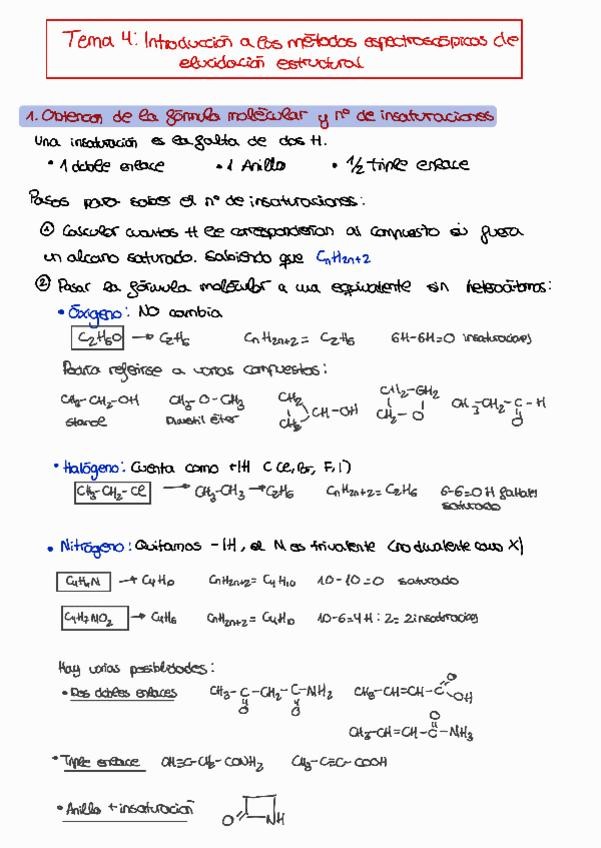 Tema 4: Introducción a los métodos espectroscópicos de
elucidación estructural
1. Obtencion de la fórmula molécular y nº de insaturaciones
Una insaturación es la falta de dos H.
• 1 doble enlace • 1 Anillo • 1/2 triple enlace
Pasos para saber el nº de insaturaciones:
① Calcular cuantos H le corresponderian al compuesto si fuera
un alcano saturado. Sabiendo que CnH2n+2
② Pasar la fórmula molécular a una equivalente sin heteroátomos:
• Oxígeno: NO cambia
C2H6O → C2H6 CnH2n+2 = C2H6 6H-6H=0 insaturaciones
Podría referirse a varios compuestos:
CH3-CH2-OH CH3-O-CH3 CH2 CH2 CH-OH CH2-CH2 CH2-O CH3-CH2-C-H O
Etanol Dimetil éter
• Halógeno: Cuenta como +1H (Cl, Br, F, I)
CH3-CH2-Cl → CH3-CH3 → C2H6 CnH2n+2 = C2H6 6-6=0 H faltantes
saturado
• Nitrógeno: Quitamos -1H, el N es trivalente (no divalente como X)
→ C4H10 CnH2n+2 = C4H10 10-10=0 saturado
C4H7NO2 → C4H6 CnH2n+2 = C4H10 10-6=4H : 2= 2 insaturaciones
Hay varias posiblidades:
• Dos dobles enlaces CH3-C-CH2-C-NH2 O O CH3-CH=CH-C O OH
CH3-CH=CH-C-NH3 O
• Triple enlace CH≡C-CH2-CONH2 CH3-C≡C-COOH
• Anillo + insaturación O NH